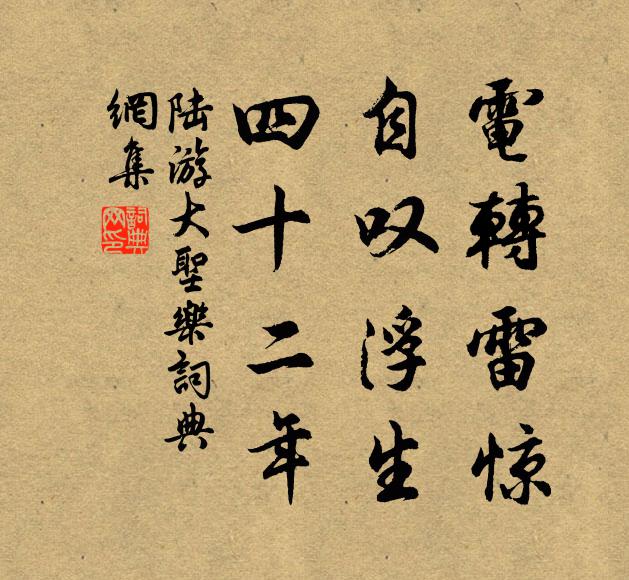 電轉雷惊
自叹浮生
四十二年
陆游大聖樂詞典
網集
詞典
网印